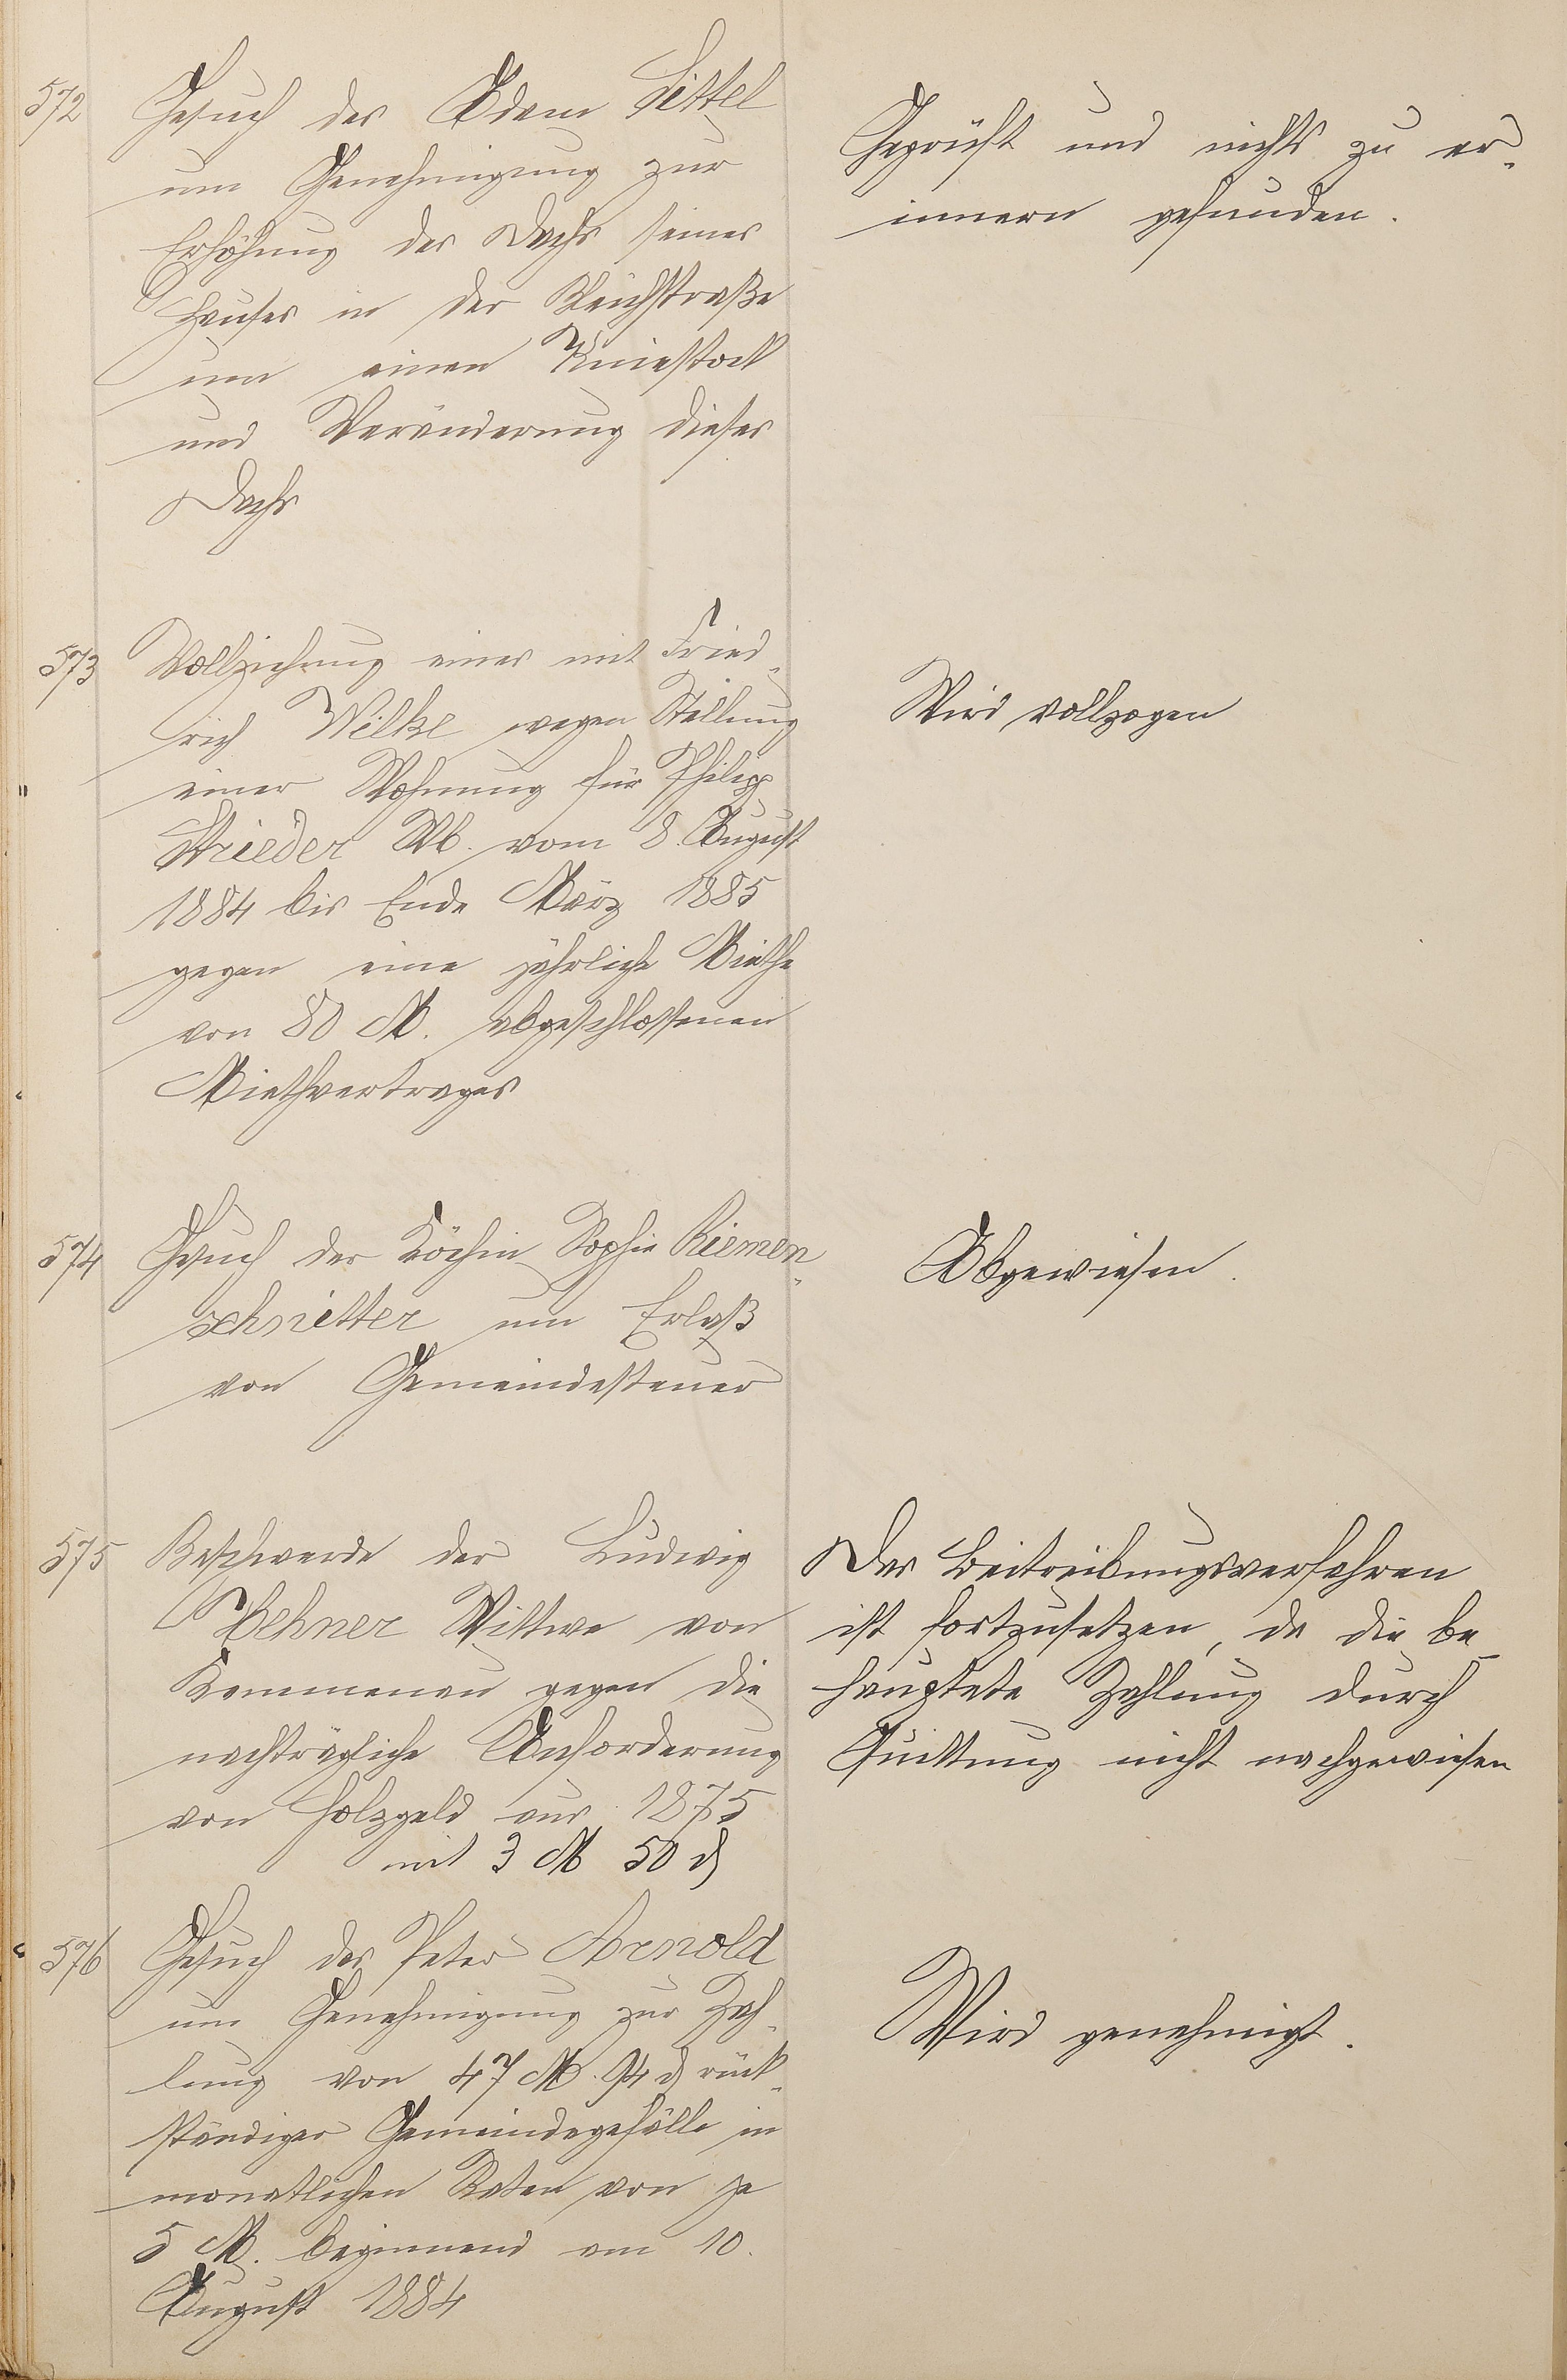 572
Gesuch des Adam Sittel
um Genehmigung zur
Erhöhung des Dachs seines
Hauses in der Weichstraße
um einen Kniestock
und Veränderung dieses
Dachs
Geprüft und nichts zu er-
innern gefunden.
573
Vollziehung eines mit Fried-
rich Wilke wegen Stellung
einer Wohnung für Philipp
Strieder Wb. vom 8. August
1884 bis Ende März 1885
gegen eine jährliche Miethe
von 80 M. abgeschlossenen
Miethvertrages
Wird vollzogen
574
Gesuch der Köchin Sophie Riemen-
schnitter um Erlaß
von Gemeindesteuer
Abgewiesen.
575
Beschwerde der Ludwig
Wittwe von
gegen die
nachträgliche Anforderung
von Holzgeld aus 1875
mit 3 M 50 ₰
Das Beitreibungsverfahren
ist fortzusetzen, da die be-
hauptete Zahlung durch
Quittung nicht nachgewiesen
576
Gesuch des Peter Arnold
um Genehmigung zur Zah-
lung von 47 M. 94 ₰ rück-
ständiger Gemeindegefälle in
monatlichen Raten von je
5 M. beginnend am 10.
August 1884
Wird genehmigt.